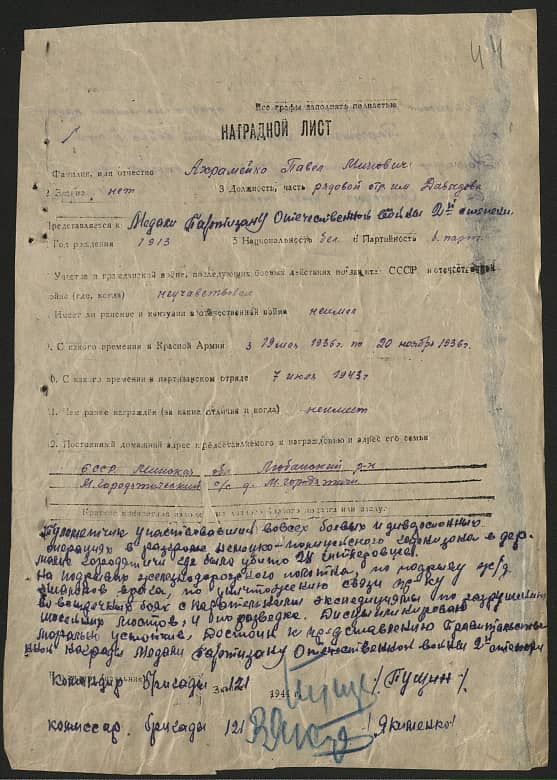 44
Все графы заполнять полностью
НАГРАДНОЙ ЛИСТ
Фамилия, имя отчество Ахрамейко Павел Минович
2. Звание нет 3 Должность, часть рядовой отр. им Давыдова
Представляется к Медали Партизану Отечественной войны 2й степени
Год рождения 1913 5 Национальность бел. 6 Партийность б. парт.
Участие в гражданской войне, последующих боевых действиях по защите СССР и отечественной
войне (где, когда) неучавствовал
Имеет ли ранение и контузии в отечественной войне неимел
С какого времени в Красной Армии з 19 мая 1936 г. по 20 ноября 1936 г.
С какого времени в партизанском отряде 7 июля 1943 г
1. Чем ранее награжден (за какие отличия и когда) неимеет
2. Постоянный домашний адрес представляемого к награждению и адрес его семьи
БССР Минская обл Любанский р-н
М. Городятический с/с д. М. Городятичи
Пулеметчик участвовавший вовсех боевых и диверсионных
операциях в разгроме немецко-полицейского гарнизона в дер.
Городятичи где было убито 24 гитлеровцев.
на подрыве железнодорожного полотна, по подрыву ж/д
эшалонов врага, по уничтожению связи пр-ку
во встречных боях с карательными экспедициями по разрушению
шосейных мостов, и в разведке. Дисциплинирован
морально устойчив, Достоин к представлению Правительствен
ной награды Медали Партизану Отечественной войны 2й степени
Командир бригады 121 194 г /Пущин/
комиссар. бригады 121 /Якименко/